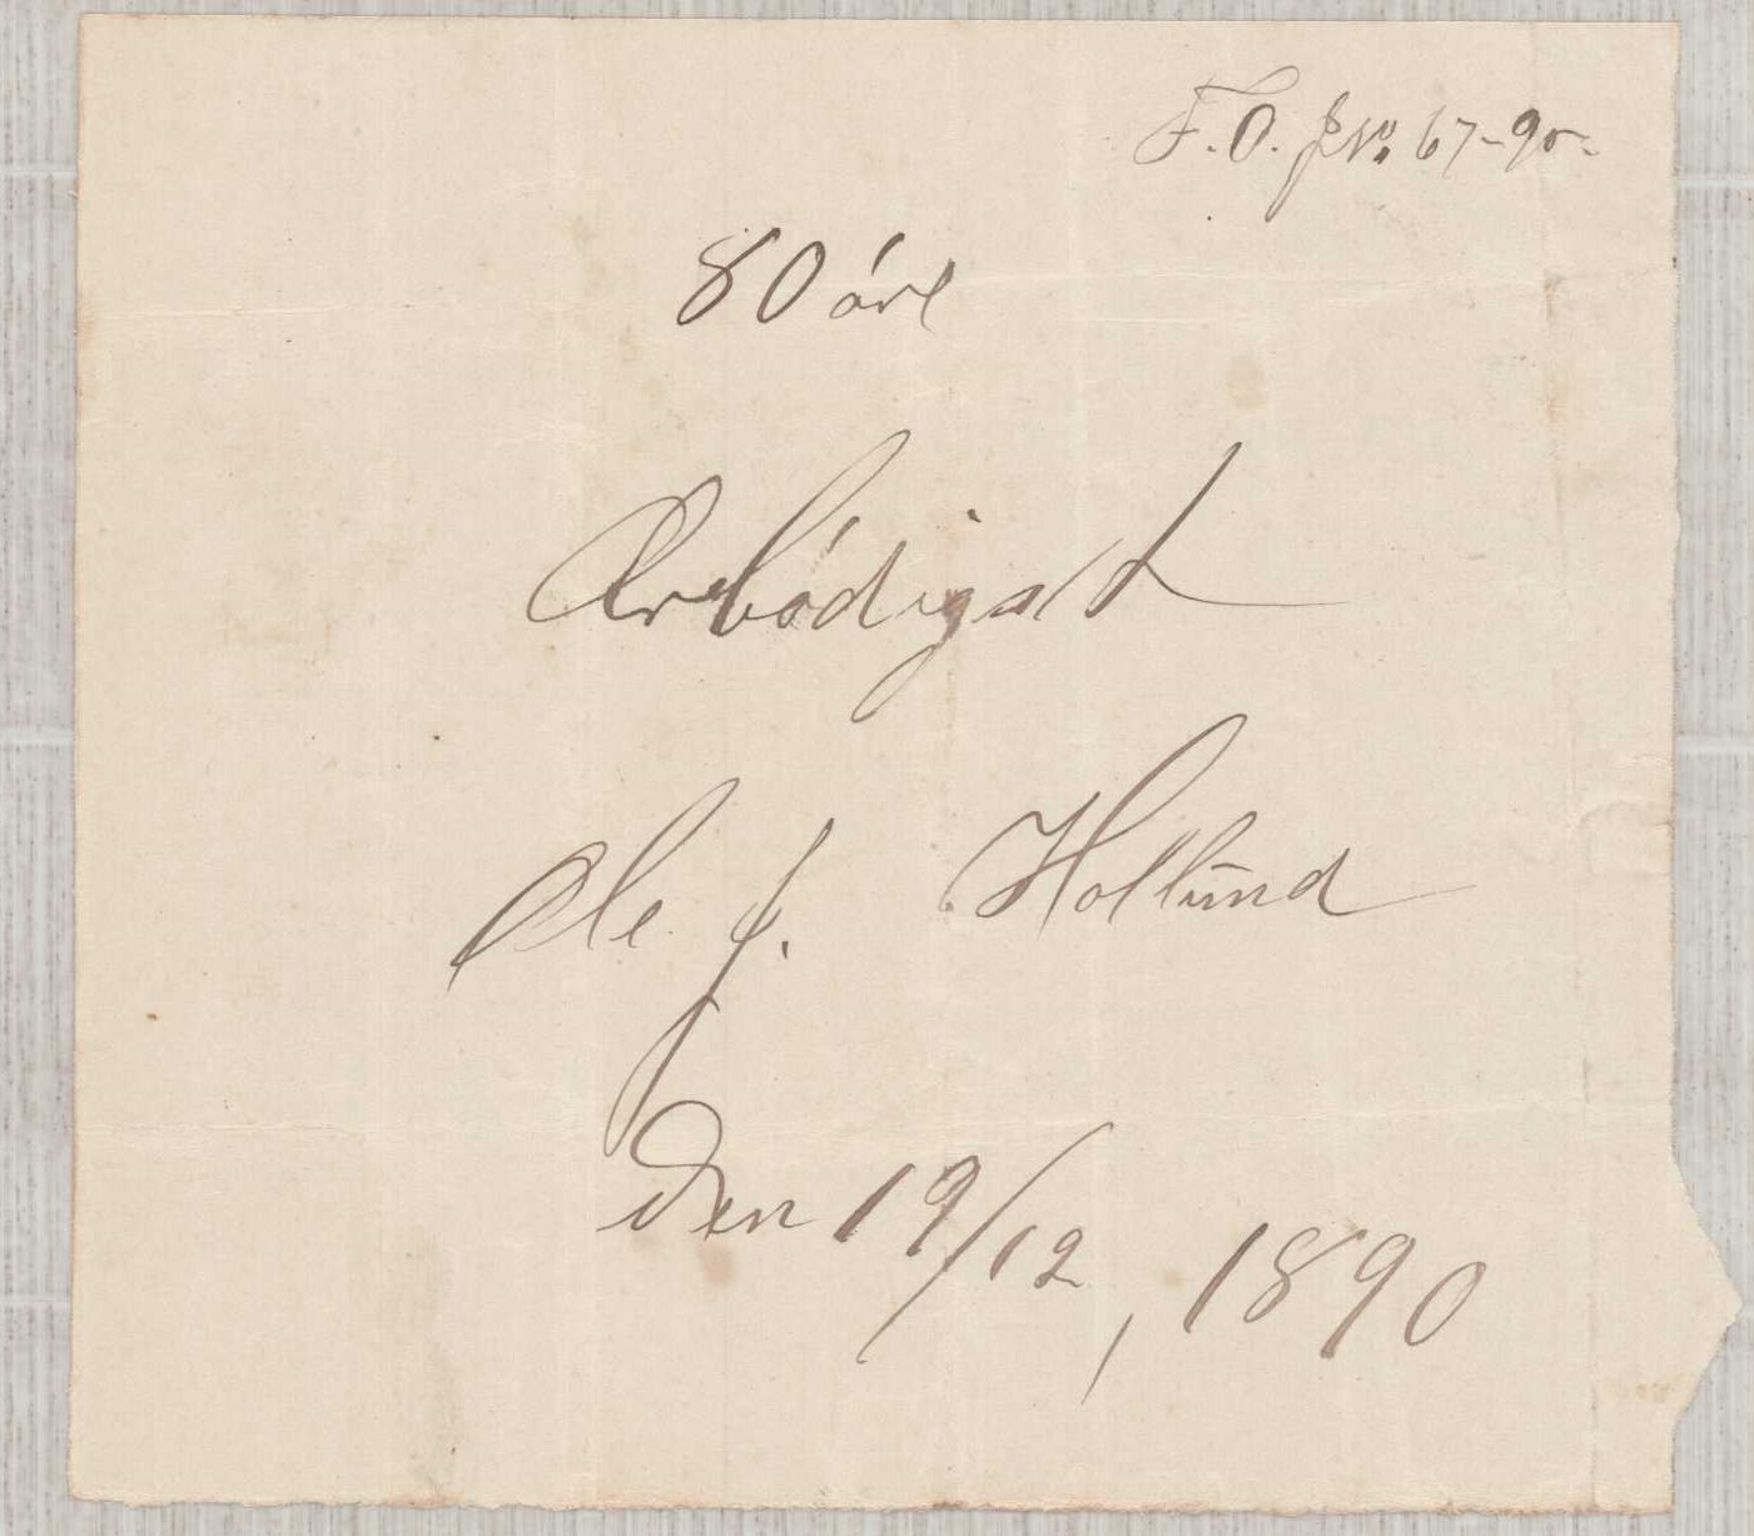 F.O. J.No. 67-90.
80 óre
Ærbódigst
Ole J. Hollund
Den 19/12, 1890